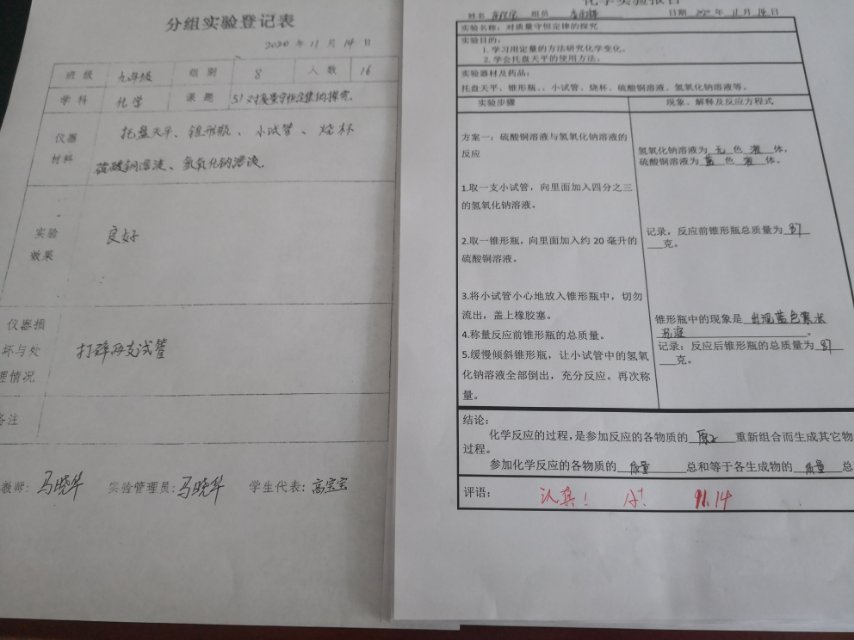 分组实验登记表
2020 年 11 月 14 日
班 级 九年级 组 别 8 人 数 16
学 科 化学 课 题 5.1对质量守恒定律的探究
仪器 托盘天平、锥形瓶、小试管、烧杯
材料 硫酸铜溶液、氢氧化钠溶液.
实验 良好
效果
仪器损
坏与处 打碎两支试管
理情况
备注
教师: 马晓华 实验管理员: 马晓华 学生代表: 高宝宝
化学实验报告
姓名 组员 日期 2020 年 11 月 14 日
实验名称：对质量守恒定律的探究
实验目的：
1. 学习用定量的方法研究化学变化。
2. 学会托盘天平的使用方法。
实验器材及药品：
托盘天平、锥形瓶、、小试管、烧杯、硫酸铜溶液、氢氧化钠溶液等。
实验步骤 现象、解释及反应方程式
方案一：硫酸铜溶液与氢氧化钠溶液的
反应
氢氧化钠溶液为 无 色 液 体，
硫酸铜溶液为 蓝 色 液 体。
1.取一支小试管，向里面加入四分之三
的氢氧化钠溶液。
2.取一锥形瓶，向里面加入约 20 毫升的
硫酸铜溶液。
记录，反应前锥形瓶总质量为 87
克。
3.将小试管小心地放入锥形瓶中，切勿
流出，盖上橡胶塞。
4.称量反应前锥形瓶的总质量。
5.缓慢倾斜锥形瓶，让小试管中的氢氧
化钠溶液全部倒出，充分反应。再次称
量。
锥形瓶中的现象是 出现蓝色絮状
沉淀 。
记录：反应后锥形瓶的总质量为 87
克。
结论：
化学反应的过程，是参加反应的各物质的 原子 重新组合而生成其它物
过程。
参加化学反应的各物质的 质量 总和等于各生成物的 质量 总
评语： 认真！ A+ 11.14